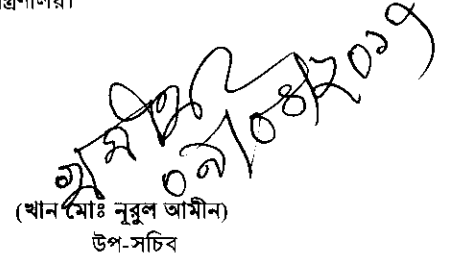 ০৯/০৪/২০১৭
(খান মোঃ নূরুল আমীন)
উপ-সচিব